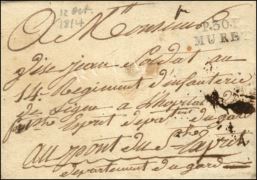 12 Oct.
1814
P.30.P.
MURE
A Monsieur
jean Soldat au
14e Regiment d'infanterie
de Ligne a L'hopital
Esprit depart. du gard
au pont du St Esprit
departement du gard